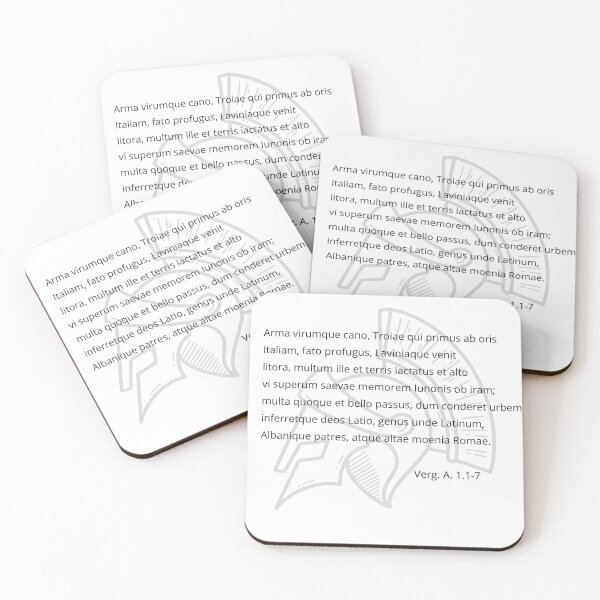 Arma virumque cano, Troiae qui primus ab oris
Italiam, fato profugus, Laviniaque venit
litora, multum ille et terris iactatus et alto
vi superum saevae memorem Iunonis ob
multa quoque et bello passus, dum
inferretque unde
moenia
A.
Arma virumque cano, Troiae qui primus ab oris
Italiam, fato profugus, Laviniaque venit
litora, multum ille et terris iactatus et alto
vi superum saevae memorem Iunonis ob iram;
multa quoque et bello passus, dum conderet urbem
inferretque deos Latio, genus unde Latinum,
Albanique patres, atque altae moenia Romae.
1.1-7
Arma virumque cano, Troiae qui primus ab oris
Italiam, fato profugus, Laviniaque venit
litora, multum ille et terris iactatus et alto
vi superum saevae memorem Iunonis ob iram;
multa quoque et bello passus, dum conderet urbem
inferretque deos Latio, genus unde Latinum,
Albanique patres, atque altae moenia Romae.
Arma virumque cano, Troiae qui primus ab oris
Italiam, fato profugus, Laviniaque venit
litora, multum ille et terris iactatus et alto
vi superum saevae memorem Iunonis ob iram;
multa quoque et bello passus, dum conderet urbem
inferretque deos Latio, genus unde Latinum,
Albanique patres, atque altae moenia Romae.
Verg. A. 1.1-7